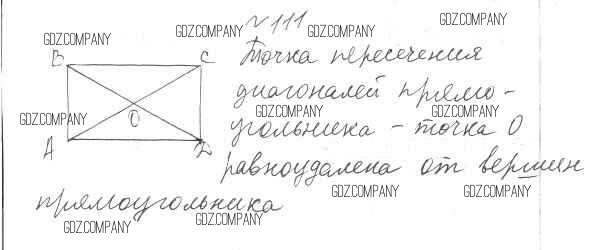 №111
GDZ.COMPANY GDZ.COMPANY GDZ.COMPANY GDZ.COMPANY
B C Точка пересечения
диагоналей прямо-
GDZ.COMPANY GDZ.COMPANY GDZ.COMPANY
O
A D угольника – точка O
равноудалена от вершин
GDZ.COMPANY GDZ.COMPANY
прямоугольника
GDZ.COMPANY GDZ.COMPANY